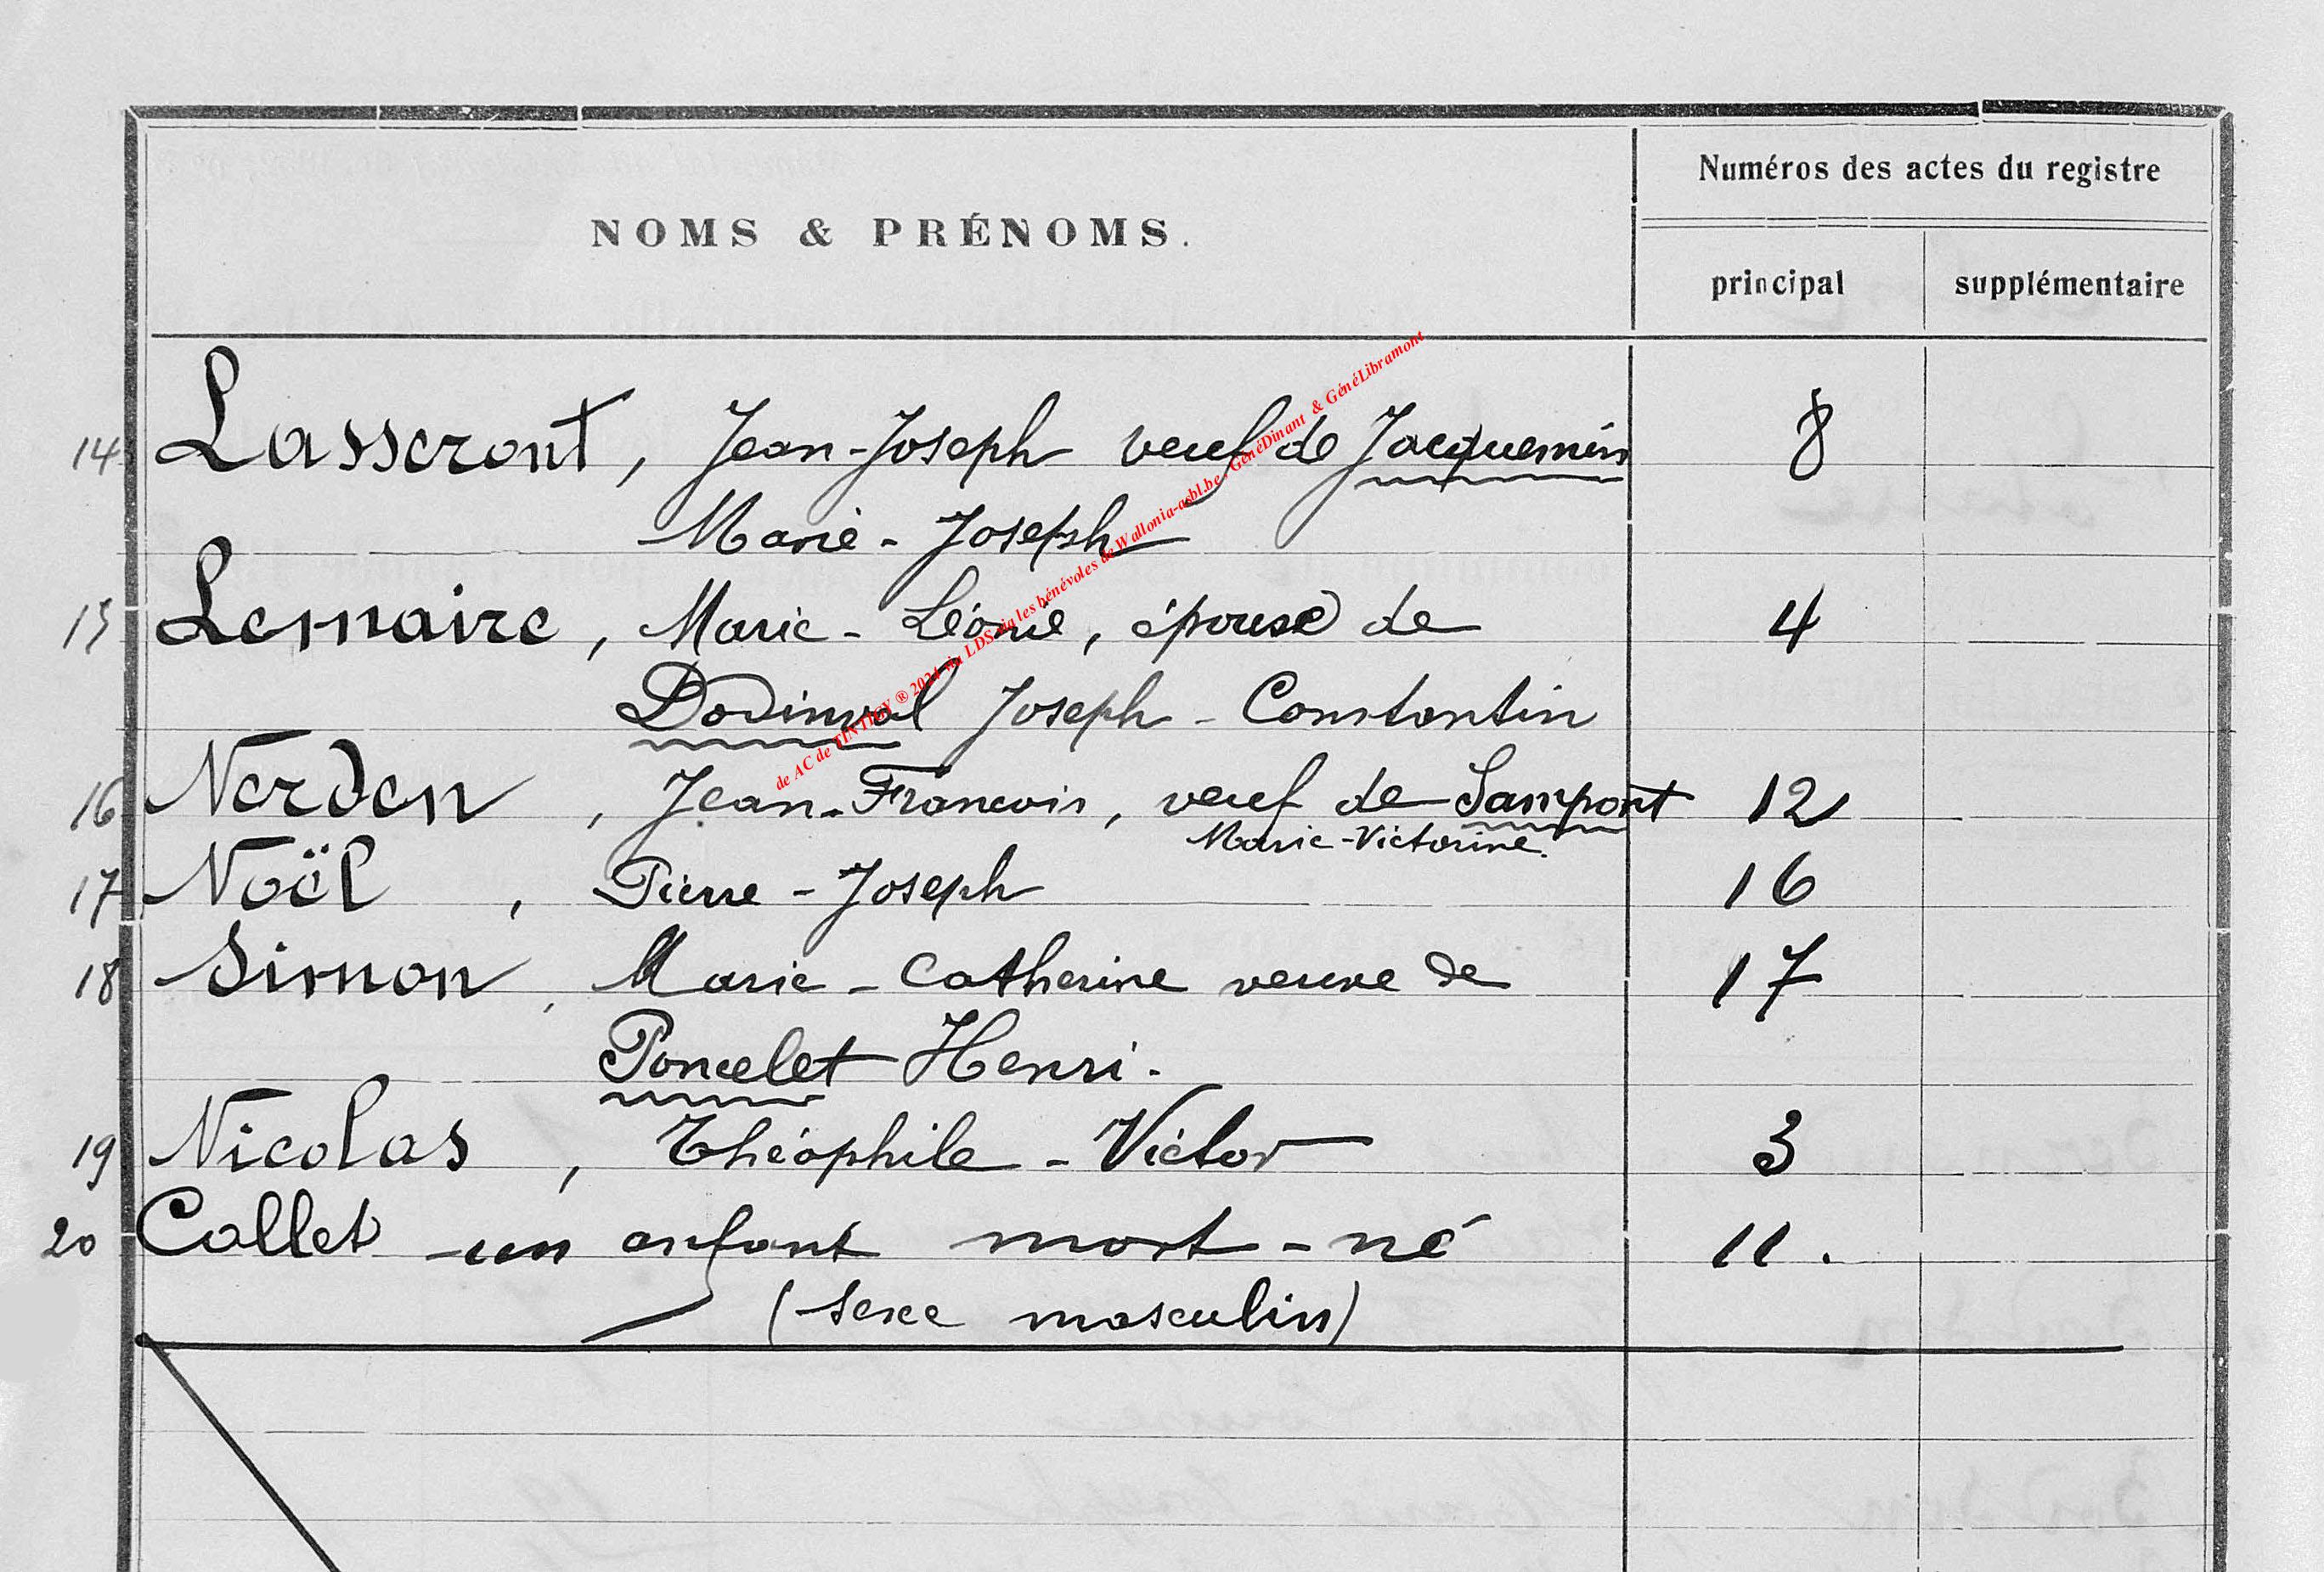 NOMS & PRÉNOMS.
Numéros des actes du registre
principal
supplémentaire
14 Lasseront, Jean-Joseph veuf de Jacquemin 8
Marie-Joseph
15 Lemaire, Marie-Léonie, épouse de 4
Dodinval Joseph-Constantin
16 Nerden, Jean-Francois, veuf de Sampont 12
Marie-Victorine.
17 Noël, Pierre-Joseph 16
18 Simon, Marie-Catherine veuve de 17
Poncelet Henri.
19 Nicolas, Théophile-Victor 3
20 Collet un enfant mort-né 11.
(sexe masculin)
de AC de TINTIGNY ® 2024 via LDS via les bénévoles de Wallonia-asbl.be, GénéDinant & GénéLibramont